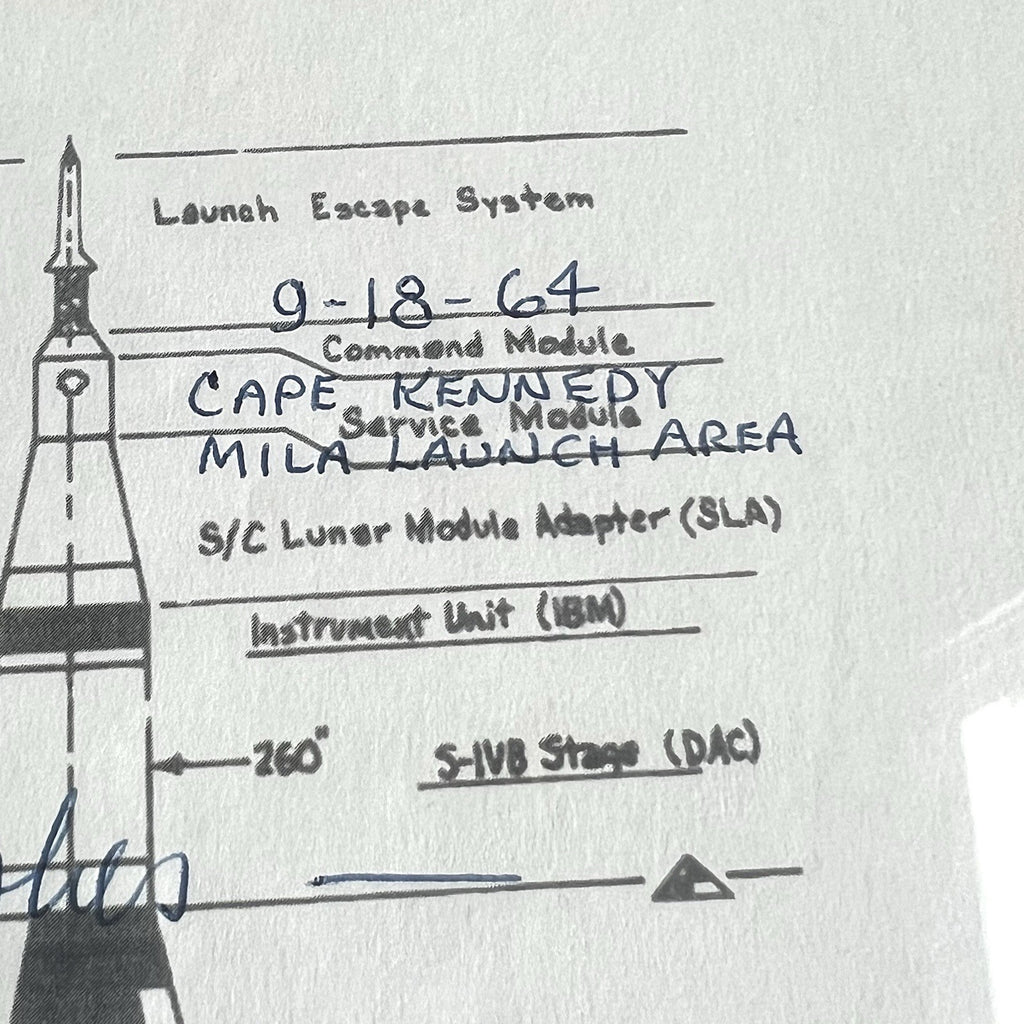 Launch Escape System
9-18-64
Command Module
CAPE KENNEDY
Service Module
MILA LAUNCH AREA
S/C Lunar Module Adapter (SLA)
Instrument Unit (IBM)
260"
S-IVB Stage (DAC)